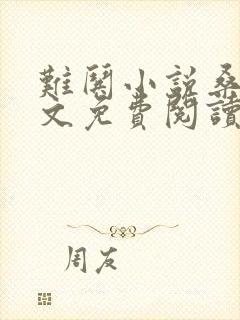 難關小說桑
文免費閱讀
周友